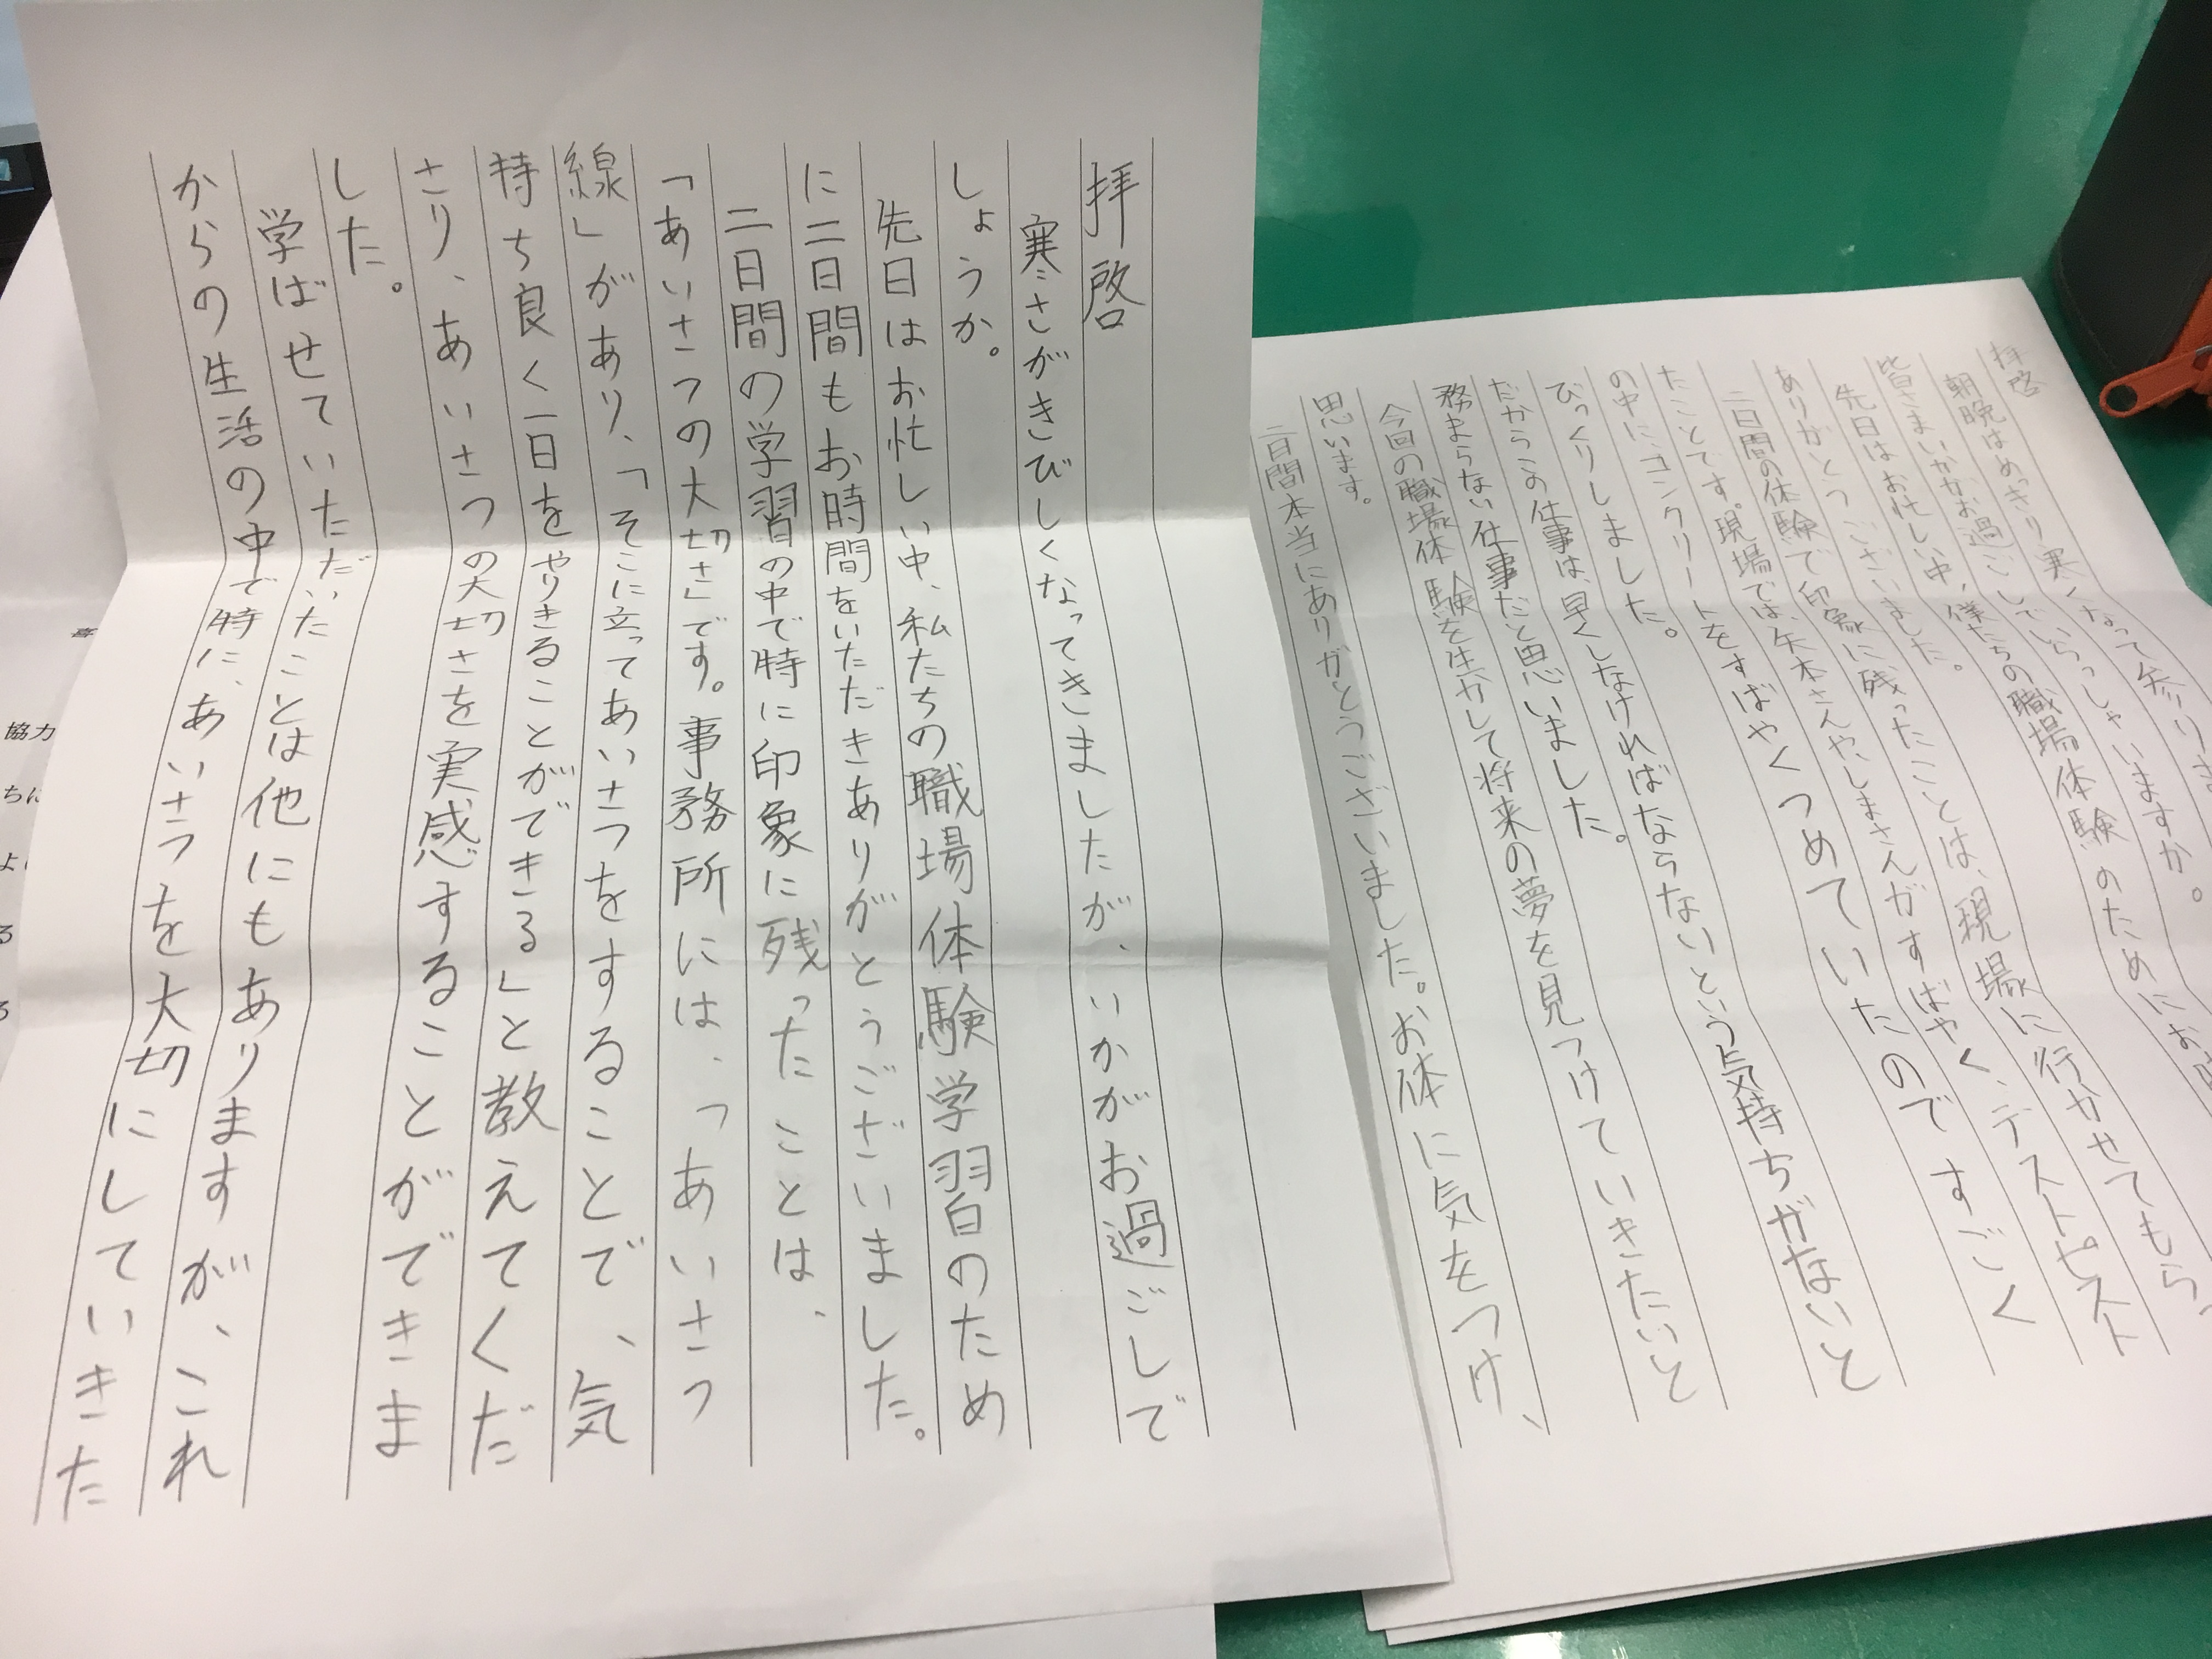 拝啓
寒さがきびしくなってきましたが、いかがお過ごしで
しょうか。
先日はお忙しい中、私たちの職場体験学習のため
に二日間もお時間をいただきありがとうございました。
二日間の学習の中で特に印象に残ったことは、
「あいさつの大切さ」です。事務所には、「あいさつ
線」があり、「そこに立ってあいさつをすることで、気
持ち良く一日をやりきることができる」と教えてくだ
さり、あいさつの大切さを実感することができま
した。
学ばせていただいたことは他にもありますが、これ
からの生活の中で特に、あいさつを大切にしていきた
拝啓
朝晩はめっきり寒くなって参りま
皆さまいかがお過ごしでいらっしゃいますか。
先日はお忙しい中、僕たちの職場体験のためにお時
ありがとうございました。
二日間の体験で印象に残ったことは、現場に行かせてもらっ
たことです。現場では、矢本さんや、しまさんがすばやく、テストピスト
の中に、コンクリートをすばやくつめていたのですごく
びっくりしました。
だからこの仕事は、早くしなければならないという気持ちがないと
務まらない仕事だと思いました。
今回の職場体験を生かして将来の夢を見つけていきたいと
思います。
二日間本当にありがとうございました。お体に気をつけ、
協力
ちに
よ
る